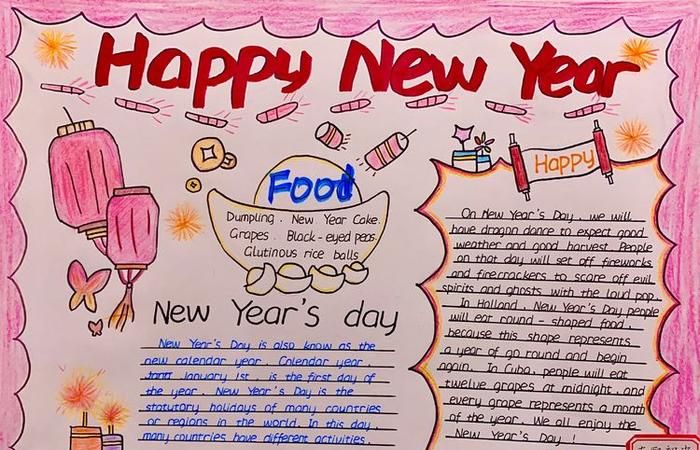 Happy New Year
Food
Dumpling. New Year Cake.
Grapes. Black-eyed peas.
Glutinous rice balls
New Year's day
New Year's Day is also know as the
new calendar year. Calendar year
January 1st, is the first day of
the year. New Year's Day is the
statutory holidays of many countries
or regions in the world. In this day,
many countries have different activities.
Happy
On New Year's Day, we will
have dragon dance to expect good
weather and good harvest. People
on that day will set off fireworks
and firecrackers to scare off evil
spirits and ghosts with the loud pop.
In Holland, New Year's Day people
will ear round-shaped food,
because this shape represents
a year of go round and begin
again. In Cuba, people will eat
twelve grapes at midnight, and
every grape represents a month
of the year. We all enjoy the
New Year's Day!